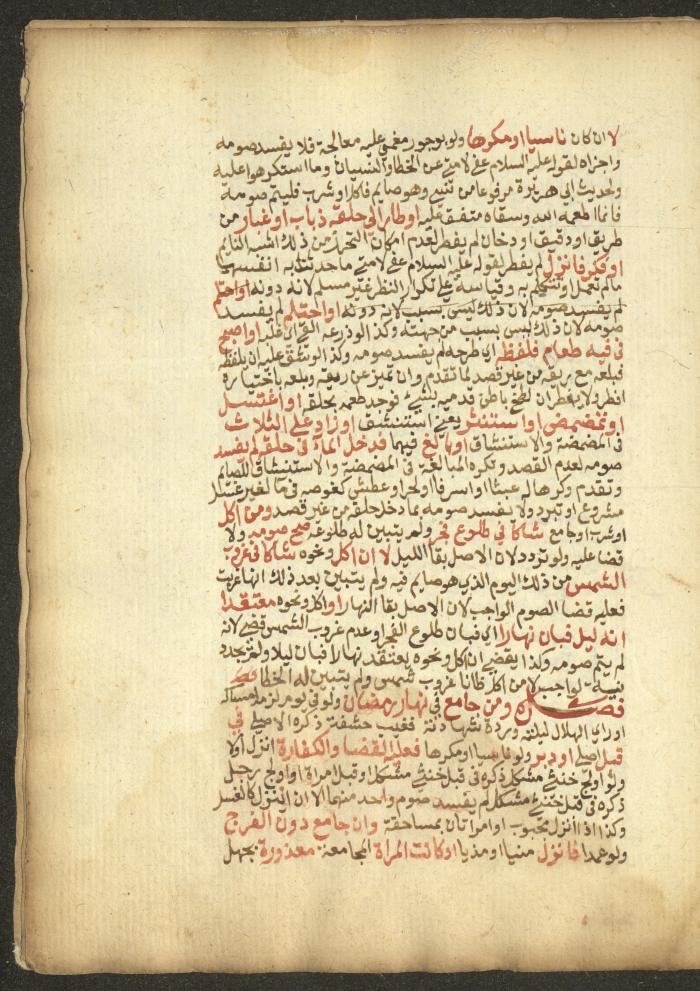 لا ان كان ناسيا او مكرها ولو بوجور مغمي عليه معالجة فلا يفسد صومه
واجزاه لقوله عليه السلام عفي لامتي عن الخطا والنسيان وما استكرهوا عليه
ولحديث ابي هريرة مرفوعا من نسي وهو صايم فاكل او شرب فليتم صومه
فانما اطعمه الله وسقاه متفق عليه او طار الي حلقه ذباب او غبار من
طريق او دقيق او دخان لم يفطر لعدم امكان التحرز من ذلك اشبه النايم
او فكر فانزل لم يفطر لقوله عليه السلام عفي لامتي ما حدثت به انفسها
ما لم تعمل او تتكلم به وقياسه علي تكرار النظر غير مسلم لانه دونه او احتلم
لم يفسد صومه لان ذلك ليس بسبب لانه دونه او احتلم لم يفسد
صومه لان ذلك ليس بسبب من جهته وكذا لو ذرعه القي اي غلبه او اصبح
في فيه طعام فلفظه اي طرحه لم يفسد صومه وكذا لو شق عليه ان يلفظه
فبلعه مع ريقه من غير قصد لما تقدم وان تميز عن ريقه وبلعه باختياره
افطر ولا يفطر ان لطخ باطن قدميه بشي فوجد طعمه بحلقه او اغتسل
او تمضمض او استنثر يعني استنشق او زاد علي الثلاث
في المضمضة والاستنشاق او بالغ فيهما فدخل الماء في حلقه لم يفسد
صومه لعدم القصد وتكره المبالغة في المضمضة والاستنشاق للصايم
وتقدم وكرها له عبثا او اسرافا او لحر او عطش كغوصه في ما لغير غسل
مشروع او تبرد ولا يفسد صومه بما دخل حلقه من غير قصد ومن اكل
او شرب او جامع شاكا في طلوع فجر ولم يتبين له طلوعه صح صومه ولا
قضا عليه ولو تردد لان الاصل بقا الليل لا ان اكل ونحوه شاكا في غروب
الشمس من ذلك اليوم الذي هو صايم فيه ولم يتبين بعد ذلك انها غربت
فعليه قضا الصوم الواجب لان الاصل بقا النهار او اكل ونحوه معتقدا
انه ليل فبان نهارا اي فبان طلوع الفجر او عدم غروب الشمس قضي لانه
لم يتم صومه وكذا يقضي ان اكل ونحوه يعتقد نهارا فبان ليلا ولم يجدد
نية لواجب لا من اكل ظانا غروب شمس ولم يتبين له الخطا
فصل ومن جامع في نهار رمضان ولو في يوم لزمه امساكه
او راي الهلال ليلته وردت شهادته فغيب حشفة ذكره الاصلي في
قبل اصلي او دبر ولو ناسيا او مكرها فعليه القضا والكفارة انزل او لا
ولو اولج خنثي مشكل ذكره في قبل خنثي مشكل او قبل امراة او اولج رجل
ذكره في قبل خنثي مشكل لم يفسد صوم واحد منهما الا ان انزل كالغسل
وكذا اذا انزل مجبوب او امراتان بمساحقة وان جامع دون الفرج
ولو عمدا فانزل منيا او مذيا او كانت المراة المجامعة معذورة بجهل